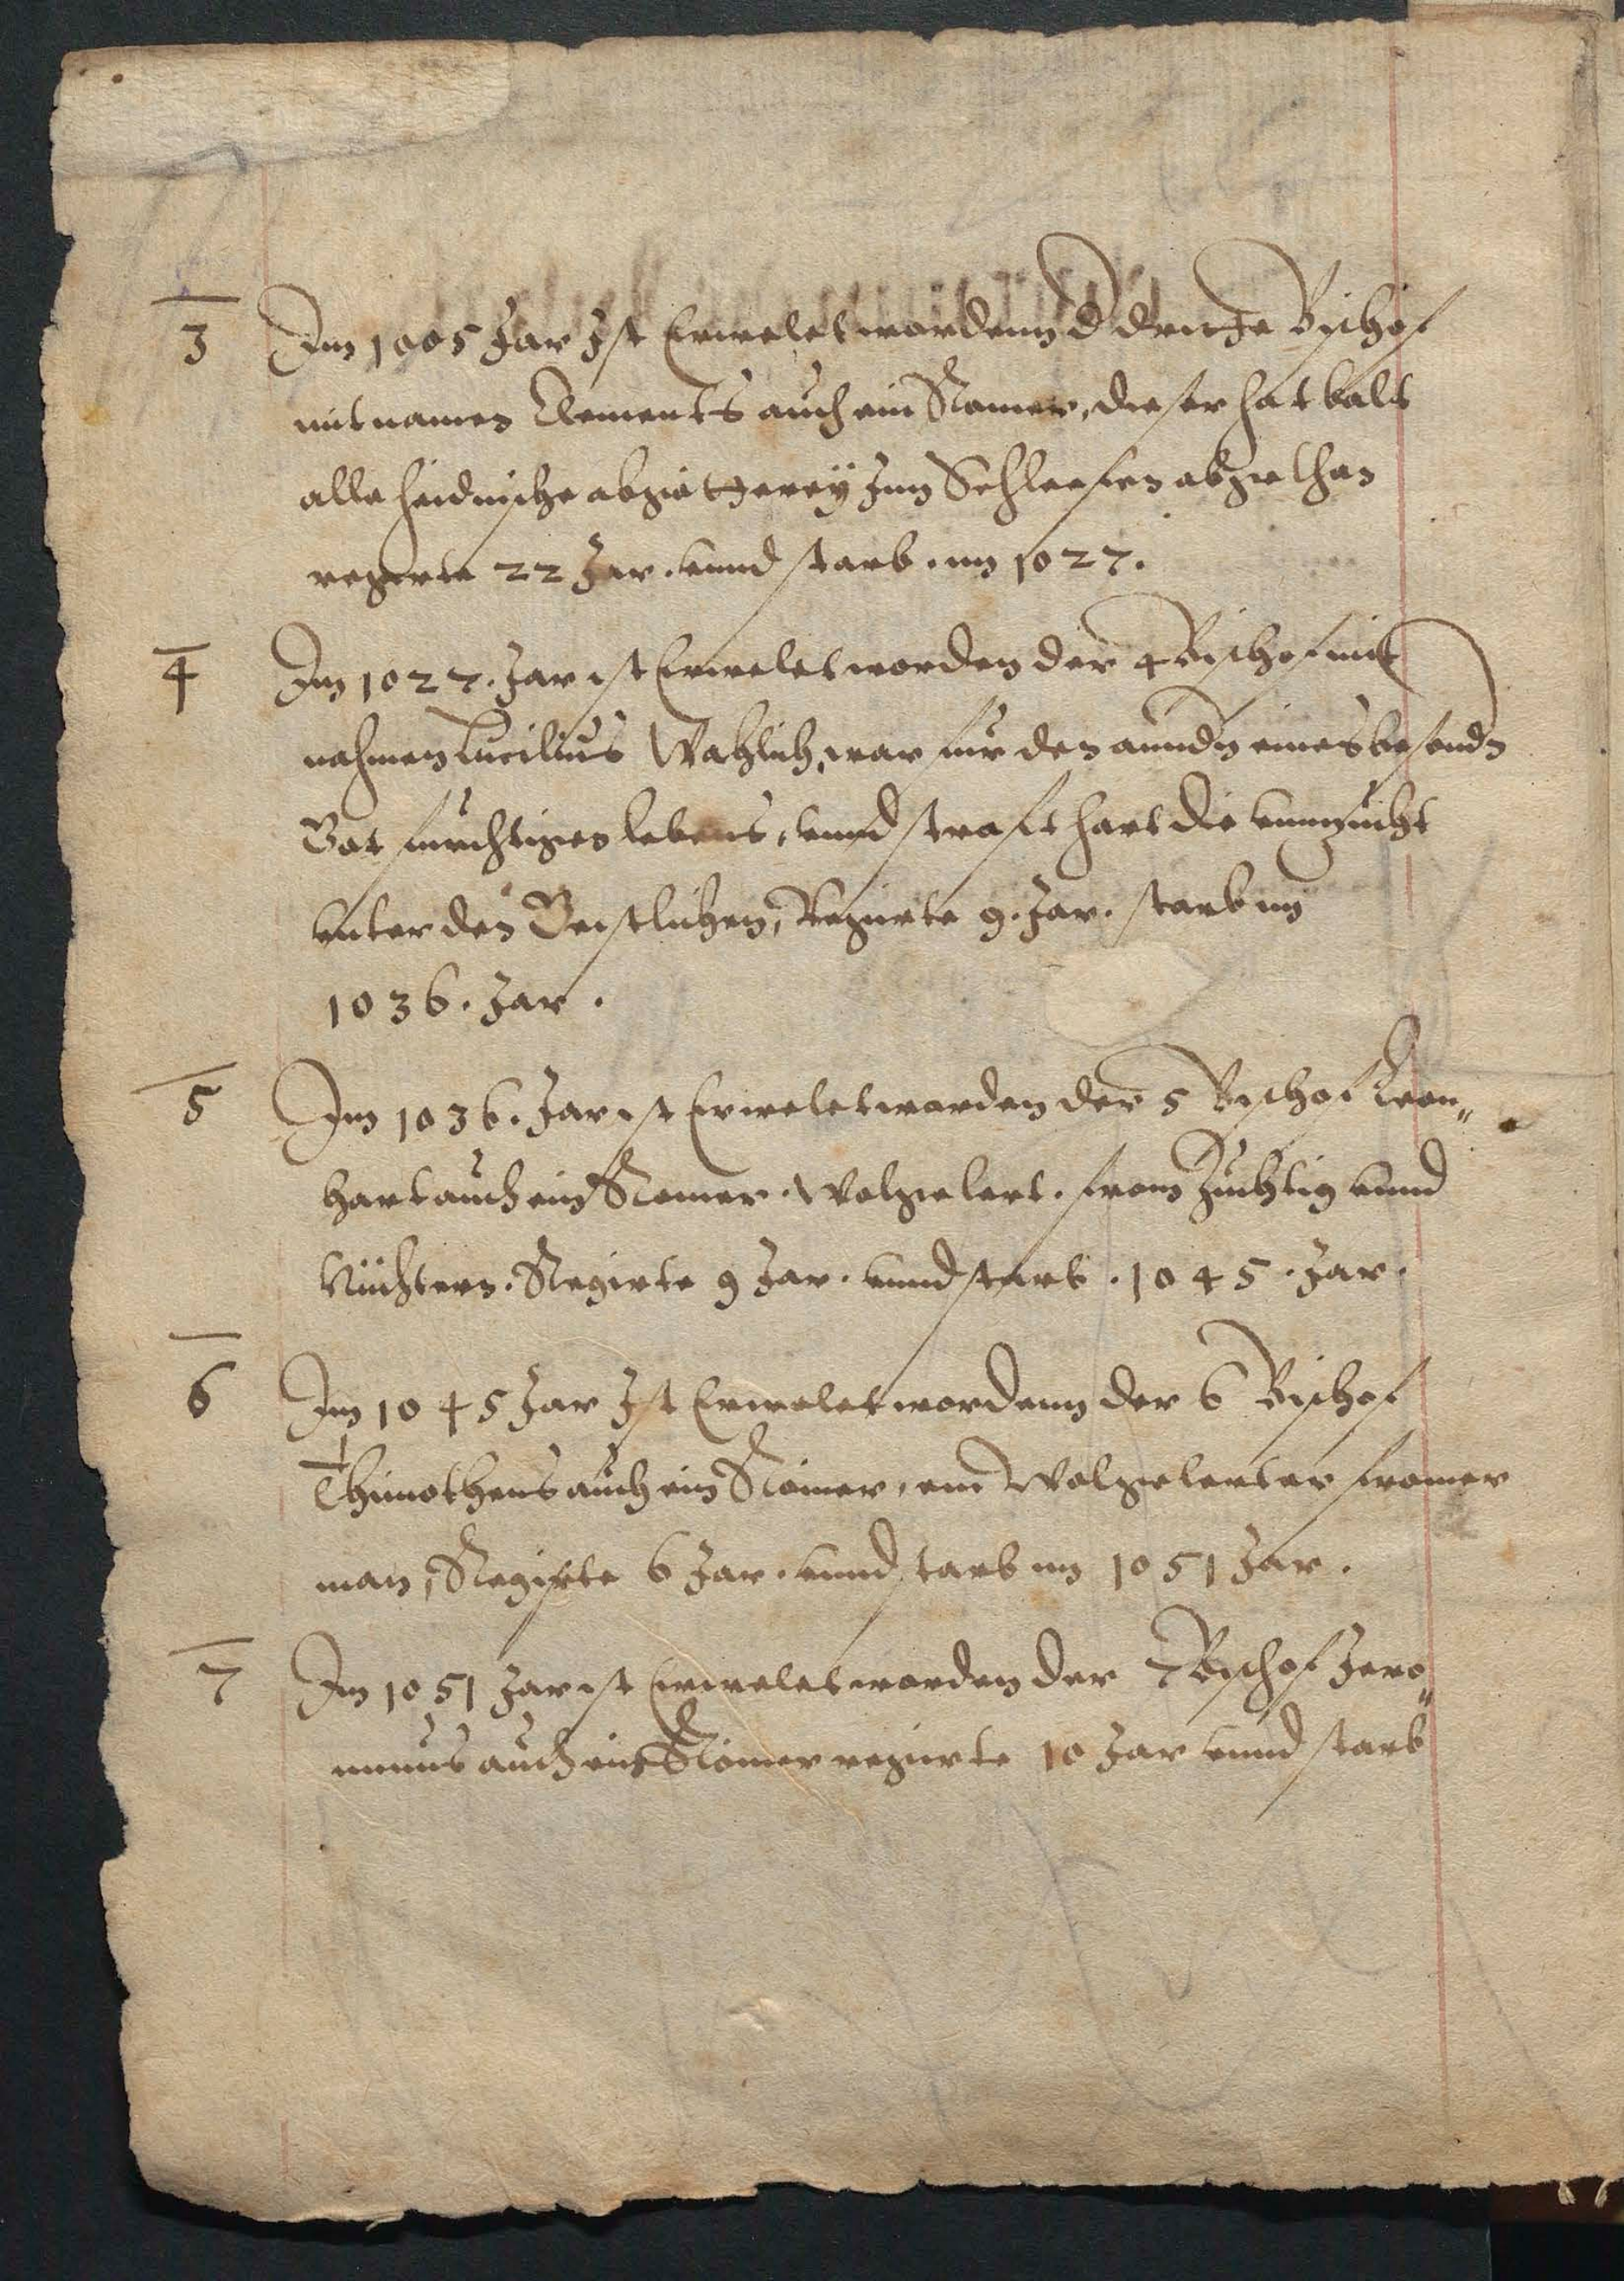 3 Im 1005 Jar Ist Erwelet wordenn d dritte Bischof
mit namen Clements auch ein Romer, dieser hat balt
alle heidnische abgötterey Inn Schlesien abgethan
regirte 22 Jar. vnnd starb im 1027.
4 Im 1027. Jar ist Erwelet worden der 4 Bischof mit
nahmen Lucilius Wahlich, war fur den anndn eines besondn
Got furchtigen lebens, vnnd straft hart die vnnzucht
vnter den Geistlichen, Regirte 9. Jar. starb im
1036. Jar.
5 Im 1036. Jar ist Erwelet worden der 5 Bischof Leon„
hart auch ein Romer. Wolgelert. from Zuchtig vnnd
Nüchtern. Regirte 9 Jar. vnnd starb. 1045. Jar.
6 Im 1045 Jar Ist Erwelet wordenn der 6 Bischof
Thimotheus auch ein Römer, ein Wolgelerter fromer
man, Regirte 6 Jar. vnnd starb im 1051 Jar.
7 Im 1051 Jar ist Erwelet worden der 7 Bischof Jero„
nimus auch ein Römer regirte 10 Jar vnnd starb